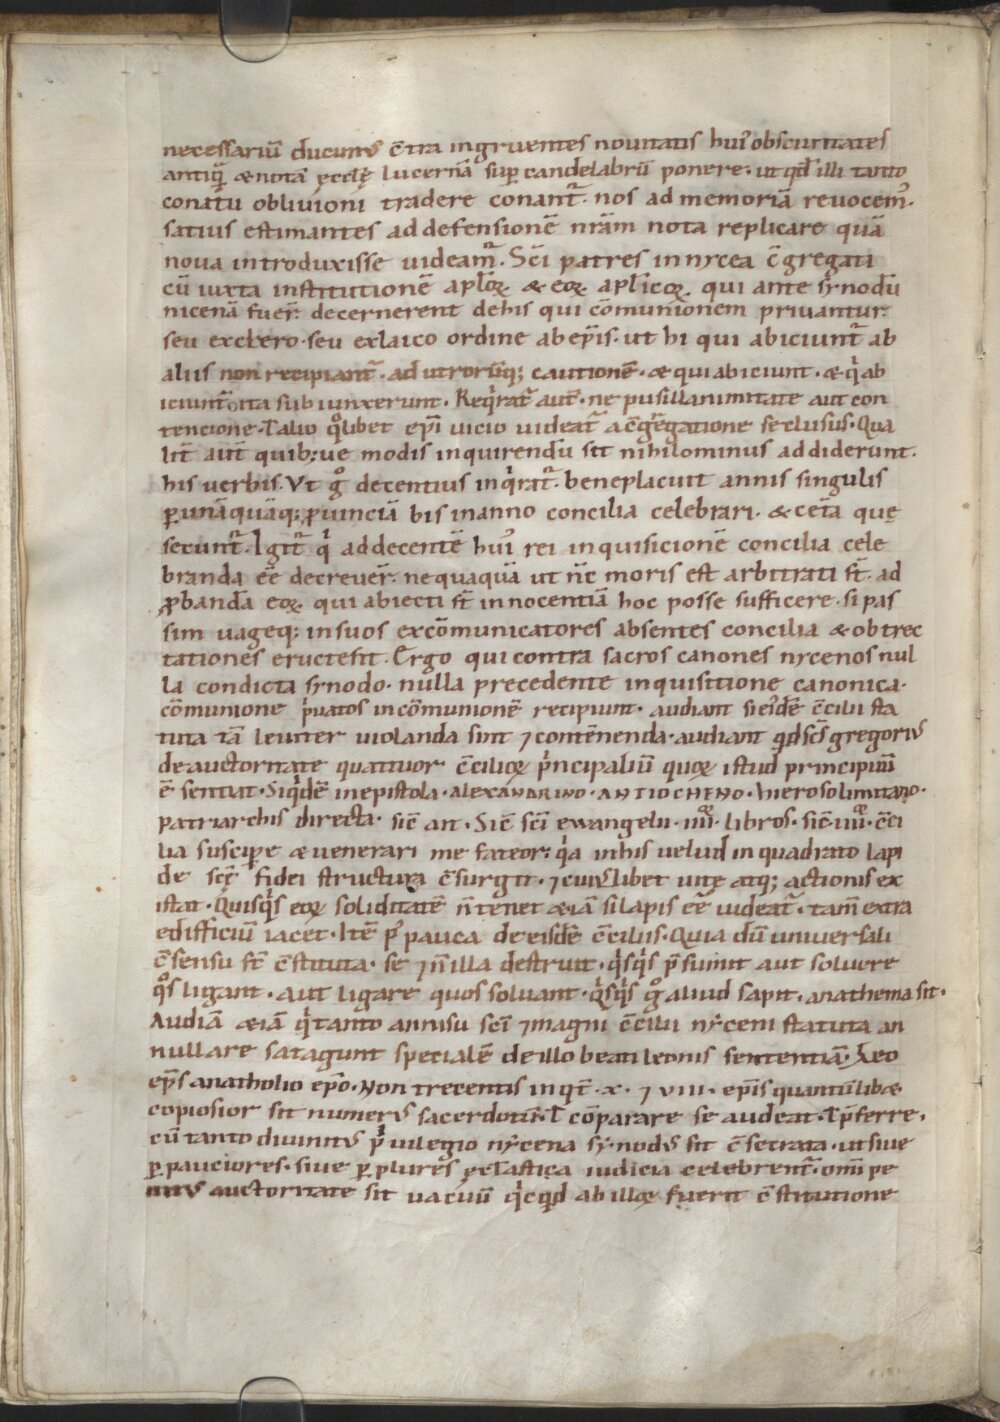 necessariū ducim᷒ c̄tra ingruentes nouitatis hui᷒ obscuritates
antiq̄ꝫ & notā ęcclę lucernā sup̱ candelabrū ponere · ut qd̄ illi tanto
conatu obliuioni tradere conant᷑ · nos ad memoriā reuocem᷒ ·
satius estimantes ad defensionē nr̄am nota replicare quā
noua introduxisse uideam᷑ · Sc̄i patres in nycea c̄gregati
cū iuxta institutionē apl̄oꝝ & eoꝝ apl̄icoꝝ qui ante synodū
nicenā fuer̄ decernerent de his qui cōmunionem priuantur
seu ex clero · seu ex laico ordine ab ep̄is · ut hi qui abiciunt᷑ ab
aliis non recipiant᷑ · ad utrorūq; cautionē · & qui abiciunt · & qͥ ab
iciunt᷑ ita subiunxerunt · Reqͥrat᷑ aut̄ · ne pusillanimitate aut con
tencione · ł alio qͦlibet ep̄i uicio uideat᷑ a c̄gregatione seclusus · Qua
lit̄ aut̄ quib;ue modis inquirendū sit nihilominus addiderunt ·
his uerbis · Vt gͦ decentius inqͥrat᷑ · beneplacuit annis singulis
ꝑ unāquāq; ꝓuinciā bis in anno concilia celebrari · & cet̄a quę
secunt᷑ · Igit᷑ qͥ ad decentē hui᷒ rei inquisicionē concilia cele
branda eē decreuer̄ · nequaquā ut nc̄ moris est arbitrati st̄ · ad
ꝓbandā eoꝝ qui abiecti st̄ innocentiā hoc posse sufficere · si pas
sim uageq; in suos excōmunicatores absentes concilia & obtrec
tationes eructent · Ergo qui contra sacros canones nycenos nul
la condicta synodo · nulla precedente inquisitione canonica ·
cōmunione pͥuatos in cōmunionē recipiunt · audiant si eidē c̄cilii sta
tuta tā leuiter uiolanda sint ⁊ contēnenda · audiant qd sc̄s gregori᷒
de auctoritate quattuor c̄cilioꝝ pͥncipaliū quoꝝ istud principiū
ē sentiat · Siqͥdē in epistola · ALEXANDRINO · ANTIOCHENO · hierosolimitano ·
patriarchis directa · sic̄ ait · Sic̄ sc̄i ewangelii · iiii · libros · sic̄ · iiii · c̄ci
lia suscip̱e & uenerari me fateor · qͥa in his uelud in quadrato lapi
de sc̄ę fidei structura c̄surgit · ⁊ cui᷒libet uitę atq; actionis ex
istat · Quisqͥs eoꝝ soliditatē n̄ tenet & iā si lapis eē uideat᷑ · tam̄ extra
edifficiū iacet · Itē p᷒ pauca de eisdē c̄ciliis · Quia dū uniuersali
c̄sensu st̄ c̄stituta · se ⁊ n̄ illa destruit · qͥsqͥs p̄sumit aut soluere
qͦs ligant · aut ligare quos soluant · Qͥsqͥs gͦ aliud sapit · anathema sit ·
Audiā & iā qͥ tanto annisu sc̄i ⁊ magni c̄cilii nyceni statuta an
nullare satagunt specialē de illo beati leonis sententiā · Leo
ep̄s anatholio ep̄o · Non trecentis inqͥt · x · ⁊ viii · ep̄is quantūlib&
copiosior sit numer᷒ sacerdotū · ł cōparare se audeat · ł p̄ferre ·
cū tanto diuinit᷒ pͥuilegio nycena synod᷒ sit c̄secrata · ut siue
ꝑ pauciores · siue ꝑ plures ęccl̄astica iudicia celebrent᷑ · omī pe
nit᷒ auctoritate sit uacuū qͥcqͥd ab illaꝝ fuerit c̄stitutione